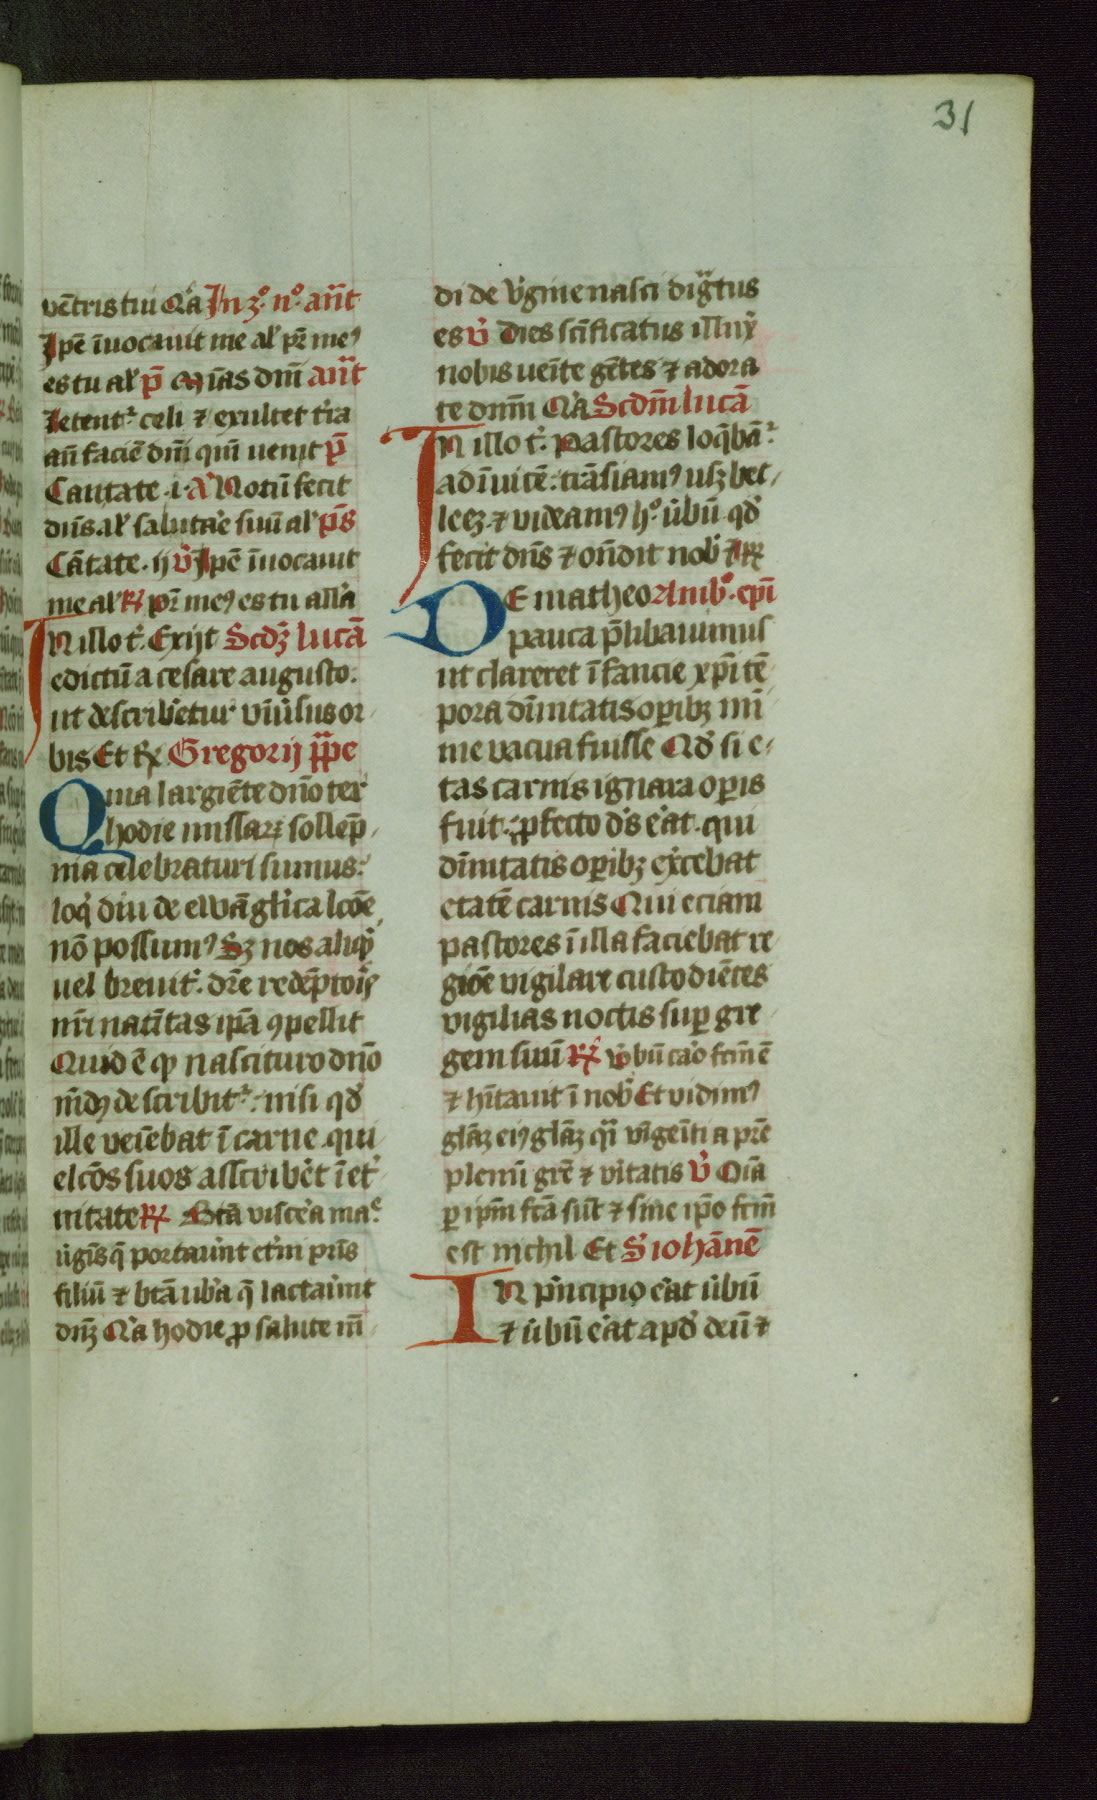 31
vētris tui Q̄a In ȝ.º n.º an̄t
Ipē īuocauit me al' pr̄ meꝰ
es tu al' p̄ Mīas dm̄i an̄t
letentᷣ celi ⁊ exultet t̄ra
an̄ faciē dn̄i qm̄ uenit p̄
Cantate .i. A Notū fecit
dn̄s al' salutar̄e suū al' ps̄
Cātate .ij v̄ Ipē īuocauit
me al' ꝶ pr̄ meꝰ es tu all̄a
IN illo t̄. Exijt Scdȝ lucā
edictū a cesare augusto.
ut describ̄etur vn̄iu̾sus or
bis Et ꝶ Gregorij pp̄e
Quia largiēte dn̄o ter
hodie missaꝝ sollēp
nia celebraturi sumus.
loq̄ diu de ewāgl̄ica lc̄ōe
nō possumꝰ Sȝ nos aliqͥd
uel breuit̄. dr̄e redēptoris
nr̄i natīitas ip̄a ꝯpellit
Quid ē qͦ nascituro dn̄o
mūdꝰ describitᷣ. nisi qd̄
ille veniebat ī carne qui
el̄cos suos asscrib̄et ī et̄
nitate ꝶ Btā visc̄a maͤ.
v̄gīs q̄ portau̾nt et̄ni pr̄is
filiū ⁊ btā ub̄a q̄ lactau̾nt
dn̄ȝ Q̄a hodie ꝓ salute m̄
di de v̄gine nasci dignͣtus
es v̄ Dies scīficatus illuxͭ
nobis ueīte gētes ⁊ adora
te dnm̄ Q̄a Scdm̄ lucā
IN illo t̄. Pastores loq̄bāᷣ.
ad īuicē. trāsiamꝰ usqȝ bet
leeȝ ⁊ videamꝰ hͦ. u̾bū qd̄
fecit dn̄s ⁊ on̄dit nob̄ ⁊ ꝶ
DE matheo Ambͦ. ep̄i
pauca p̄libauimus
ut clareret īfancie xp̄i tē
pora diūitatis oꝑibȝ mī
me vacua fuisse Qd̄ si e
tas carnis ignara oꝑis
fuit. ꝓfecto ds̄ er̄at. qui
diūitatis oꝑibȝ exc̄ebat
etatē carnis Qui eciam
pastores ī illa faciebat re
giōe vigilare custodiētes
vigilias noctis suꝑ gre
gem suū ꝶ v̄bū ca͛o fcm̄ ē
⁊ hītauit ī nob̄ Et vidimꝰ
gl̄aȝ eiꝰ gl̄aȝ qͣi vnigeīti a pr̄e
plenū gr̄e ⁊ vītatis v̄ Oīa
ꝑ ip̄m fcā sūt ⁊ sine ip̄o fcm̄
est nichil Et S̄ iohānē
IN pͥncipio er̄at u̾bū
⁊ u̾bū er̄at apd̄ deū ⁊